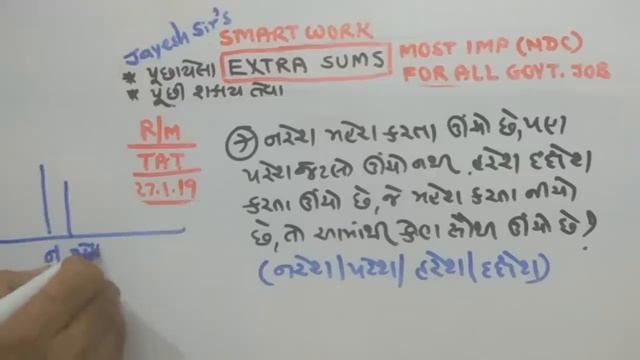 Jayesh Sir's
SMART WORK
* પૂછાયેલા
* પૂછી શકાય તેવા
EXTRA SUMS
MOST IMP (NDC)
FOR ALL GOVT. JOB
R/M
TAT
27.1.19
→ નરેશ મહેશ કરતા ઊંચો છે, પણ
પરેશ જેટલો ઊંચો નથી. હરેશ દક્ષેશ
કરતા ઊંચો છે, જે મહેશ કરતા નીચો
છે, તો આમાંથી કોણ સૌથી ઊંચો છે?
(નરેશ/પરેશ/હરેશ/દક્ષેશ)
ન